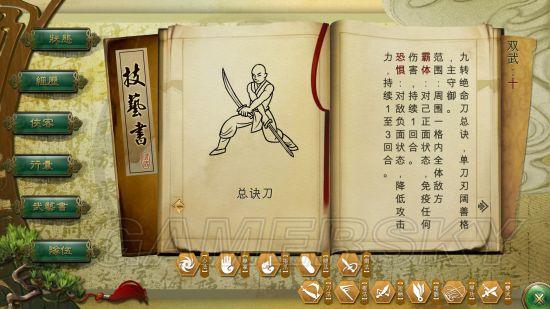 狀態
經歷
俠客
行囊
武藝書
隊伍
技藝書
总诀刀
双武:十
九转绝命刀总诀,单刀刃阔善格
,主守御。
范围:周围一格内全体敌方
霸体:对己正面状态,免疫任何
伤害,持续1回合。
恐惧:对敌负面状态,降低攻击
力,持续1至3回合。
GAMERSKY